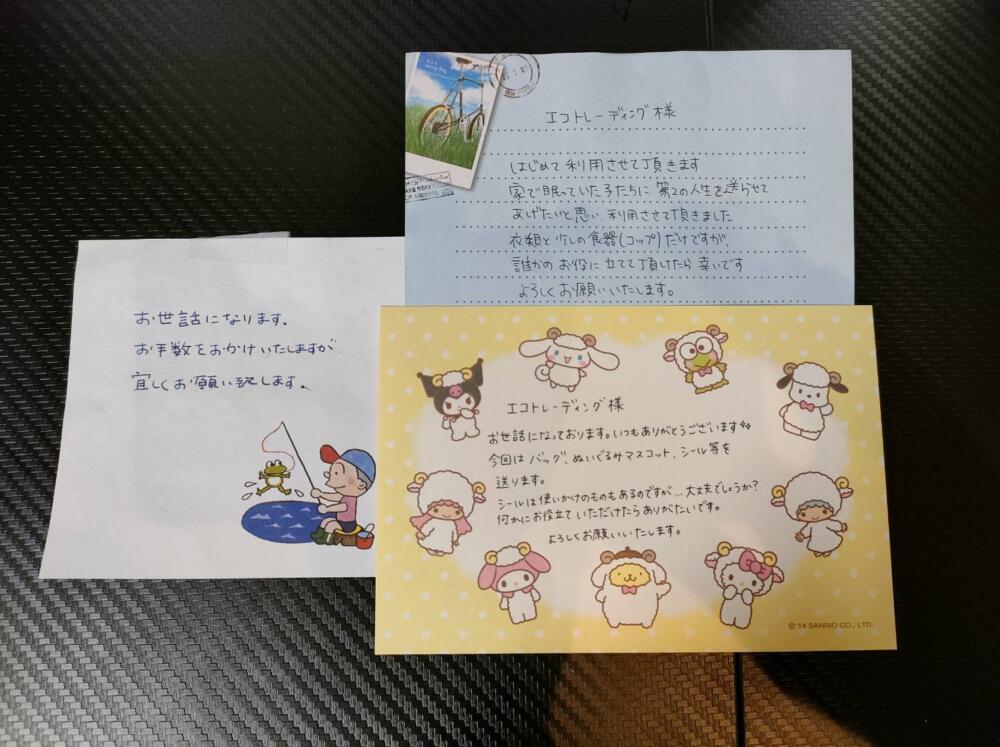 エコトレーディング様
はじめて利用させて頂きます
家で眠っていた子たちに第2の人生を送らせて
あげたいと思い、利用させて頂きました
衣類と少しの食器(コップ)だけですが、
誰かのお役に立てて頂けたら幸いです
よろしくお願いいたします。
お世話になります.
お手数をおかけいたしますが.
宜しくお願い致します。
エコトレーディング様
お世話になっております。いつもありがとうございます
今回はバッグ、ぬいぐるみマスコット、シール等を
送ります。
シールは使いかけのものもあるのですが…大丈夫でしょうか?
何かにお役立ていただけたらありがたいです。
よろしくお願いいたします。
©'14 SANRIO CO., LTD.